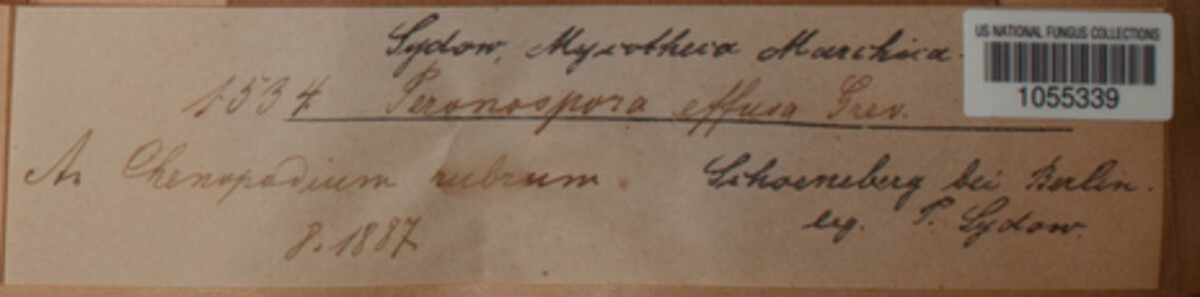 Sydow, Mycotheca Marchica.
US NATIONAL FUNGUS COLLECTIONS
1055339
1534 Peronospora effusa Grev.
An Chenopodium rubrum. Schoeneberg bei Berlin.
8. 1887 leg. P. Sydow.